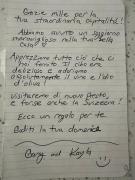 Grazie mille per la
tua straordinaria ospitalità!
Abbiamo avuto un soggiorno
meraviglioso nella tua bella
casa
Apprezziamo tutto ciò che ci
hai fornito. Il cibo era
delizioso e adoriamo
assolutamente il vino e l'olio
d'oliva!
Visiteremo di nuovo presto,
e forse anche la Svizzera!
Ecco un regalo per te
Goditi la tua domenica
Barry and Kayla